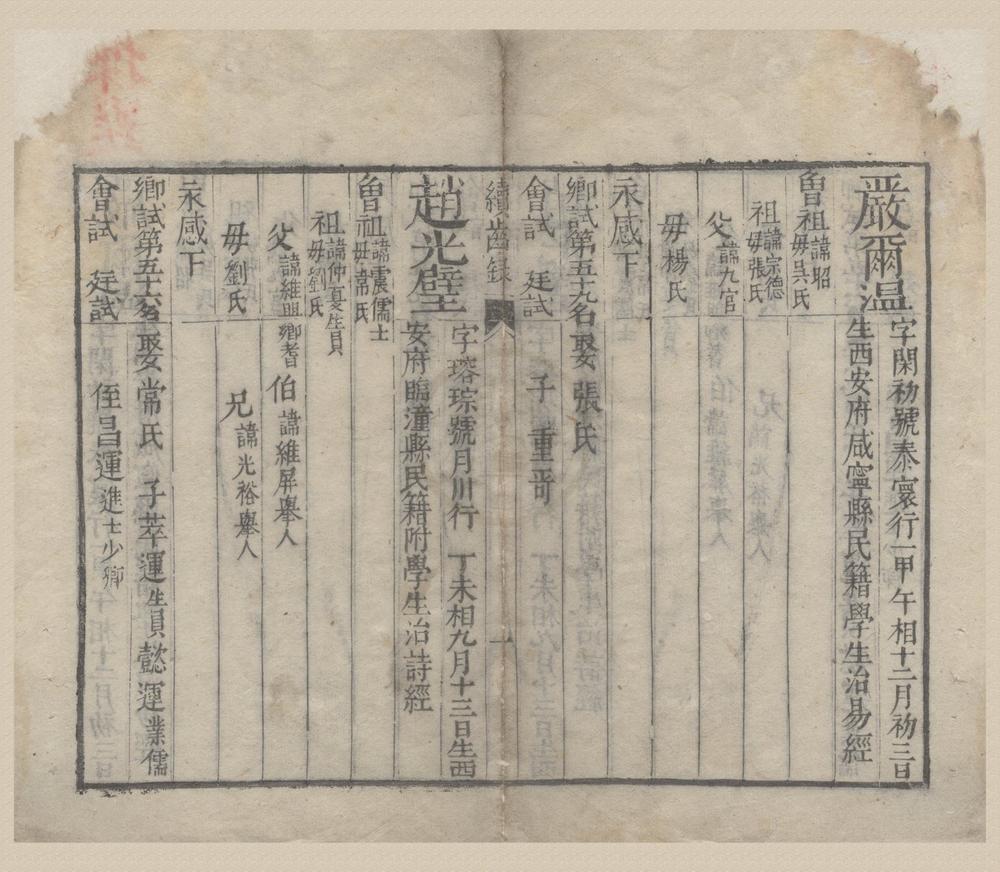 嚴爾溫
字閑初號泰寰行一甲午相十二月初三日
生西安府咸寧縣民籍學生治易經
曾祖諱昭
母吳氏
祖諱宗德
母張氏
父諱九官
母楊氏
永感下
鄉試第五十九名娶張氏
會試 廷試 子重哥
續齒錄 一
趙光璧
字瑢琮號月川行 丁未相九月十三日生西
安府臨潼縣民籍附學生治詩經
曾祖諱震儒士
母常氏
祖諱仲真生員
母劉氏
父諱維明鄉耆 伯諱維屏舉人
母劉氏 兄諱光裕舉人
永感下
鄉試第五十六名娶常氏 子萃運生員懿運業儒
會試 廷試 侄昌運進士少卿